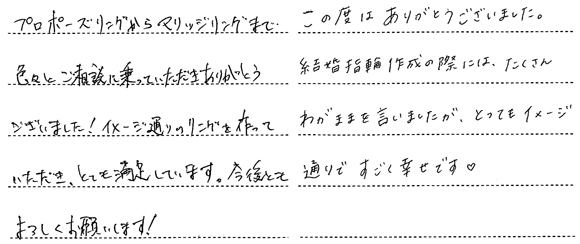 プロポーズリングからマリッジリングまで
色々とご相談に乗っていただきありがとう
ございました！イメージ通りのリングを作って
いただき、とても満足しています。今後とも
よろしくお願いします！
この度は ありがとうございました。
結婚指輪作成の際には、たくさん
わがままを言いましたが、とってもイメージ
通りで すごく幸せです♡